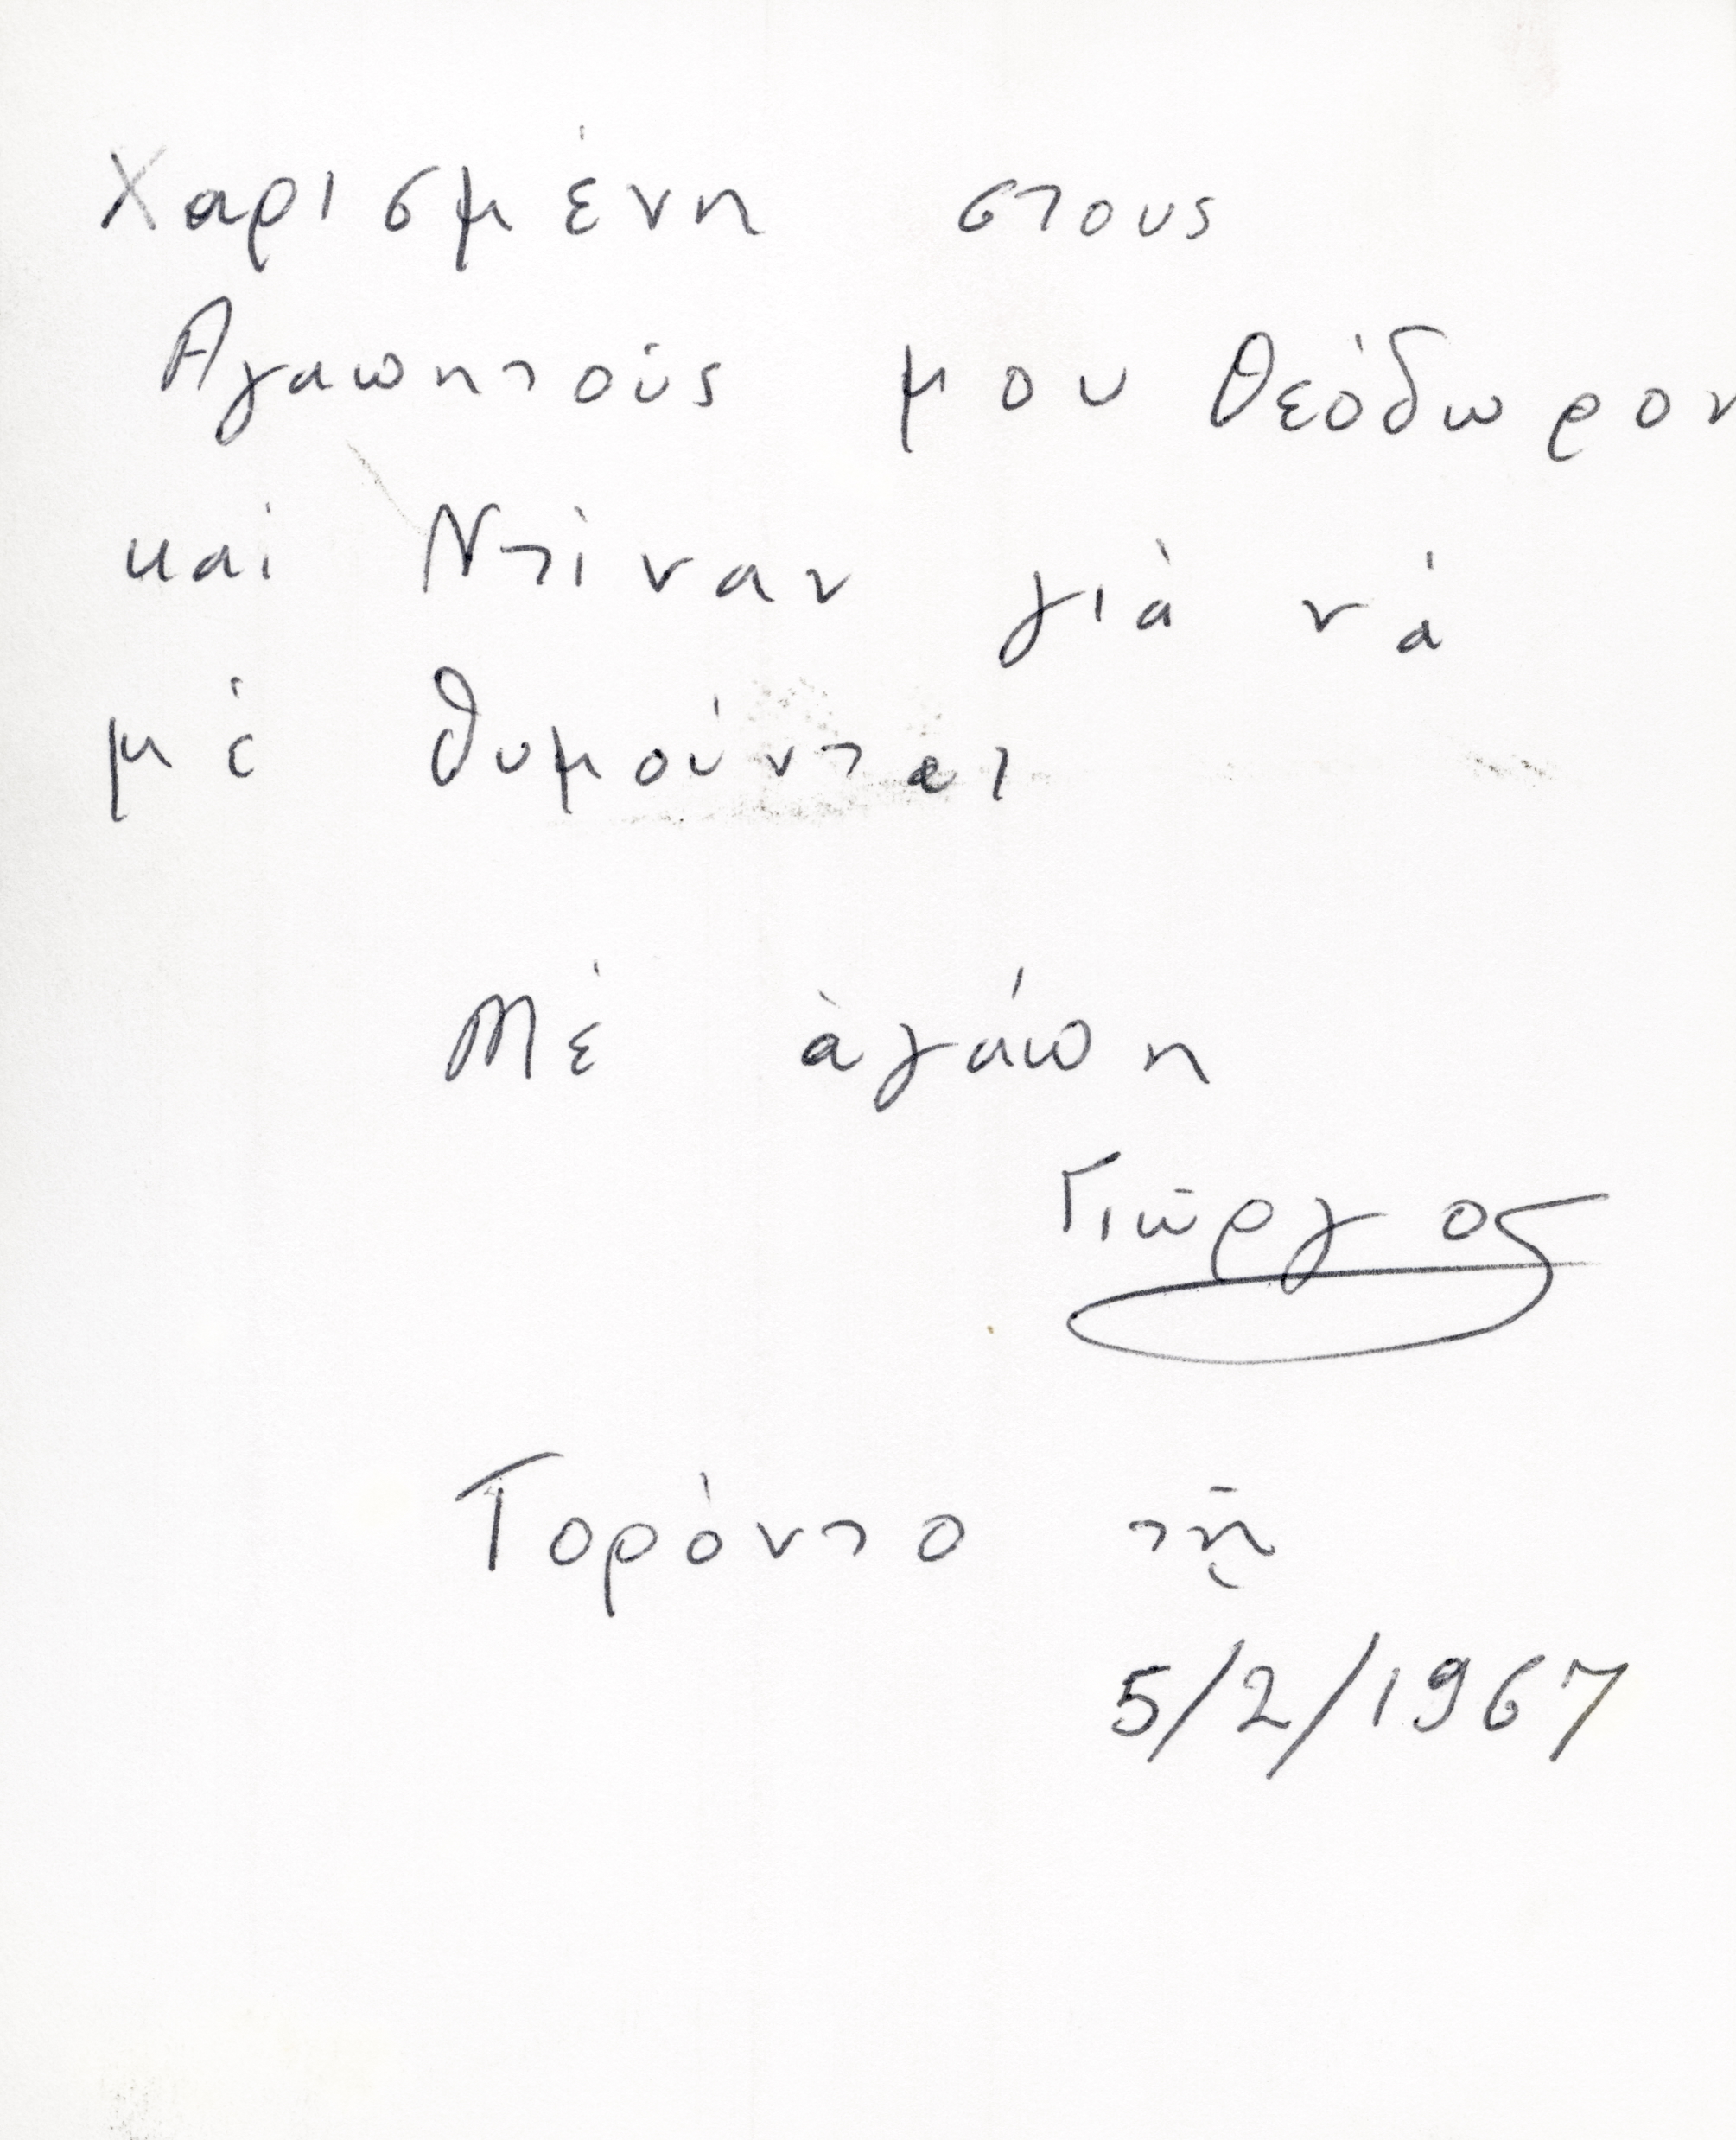 Χαρισμένη στους
Ἀγαπητούς μου Θεόδωρον
καί Ντίναν γιά νά
μέ θυμούνται
Μέ ἀγάπη
Γιῶργος
Τορόντο τῇ
5/2/1967